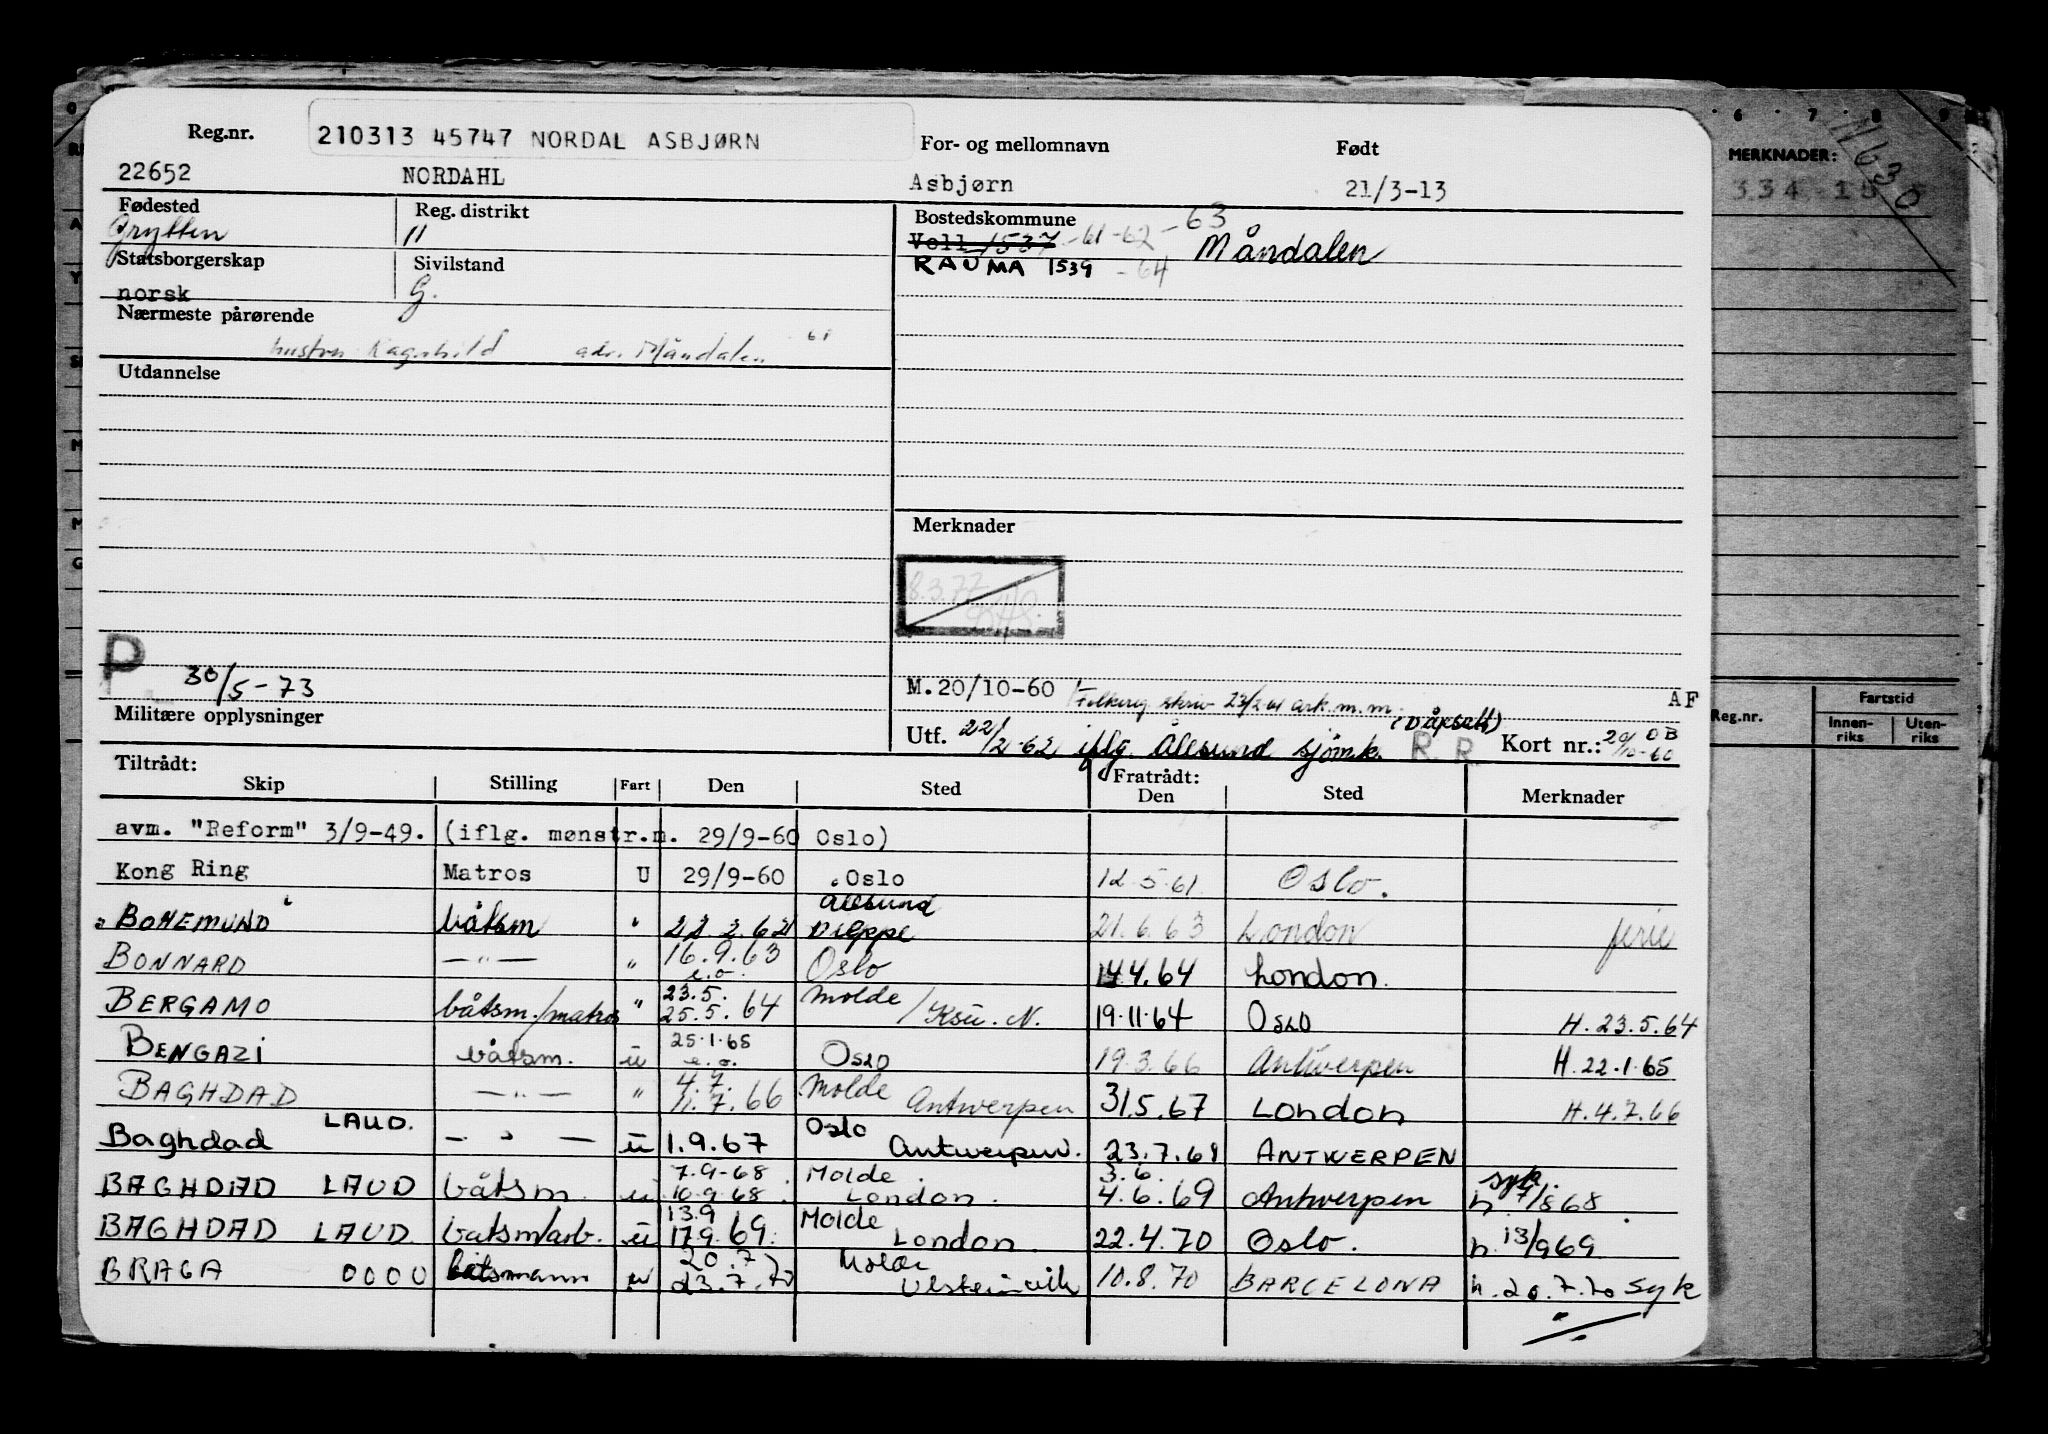 Reg.nr. 210313 45747 NORDAL ASBJØRN For- og mellomnavn Født
22652 NORDAHL Asbjørn 21/3-13
Fødested Reg. distrikt Bostedskommune
Grytten 11 Voll 1537 -61-62-63 Måndalen
Statsborgerskap Sivilstand RAUMA 1539 -64
norsk G.
Nærmeste pårørende
hustru Ragnhild adr. Måndalen 61
Utdannelse
Merknader
8.3.77
P 30/5-73
M.20/10-60 skriv 23/2-61 ark.m.m. AF
Militære opplysninger
Utf. 22/2-62 iflg. Ålesund sjømk. R.R. Kort nr.: 20/10-60 OB
Tiltrådt: Fratrådt:
Skip Stilling Fart Den Sted Den Sted Merknader
avm. "Reform" 3/9-49. (iflg. mønstr.m. 29/9-60 Oslo)
Kong Ring Matros U 29/9-60 Oslo 12.5.61 Oslo.
Ålesund
BOHEMUND båtsm " 22.2.62 Dieppe 21.6.63 London ferie
BONNARD —"— " 16.9.63 e.o. Oslo 14.4.64 London.
BERGAMO båtsm./matros " 23.5. 25.5.64 Molde / Ksü. N. 19.11.64 Oslo H.23.5.64
BENGAZI båtsm. u 25.1.65 e.o. Oslo 19.3.66 Antwerpen H.22.1.65
BAGHDAD —"— " 4.7. 11.7.66 Molde Antwerpen 31.5.67 London H.4.7.66
Baghdad LAUD. —"— u 1.9.67 Oslo Antwerpen. 23.7.68 ANTWERPEN
BAGHDAD LAUD båtsm. u 7.9-68 10.9.68. Molde London. 3.6. 4.6.69 Antwerpen syk. h. 7/868
BAGHDAD LAUD båtsm/arb. u 13.9 17.9.69. Molde London 22.4.70 Oslo. h. 13/969
BRAGA OOOU båtsmann u 20.7.7 23.7.70 Molde Ulsteinvik 10.8.70 BARCELONA h.20.7.70 syk
6 7 8 9
MERKNADER:
334
Reg.nr. Fartstid
Innenriks Utenriks